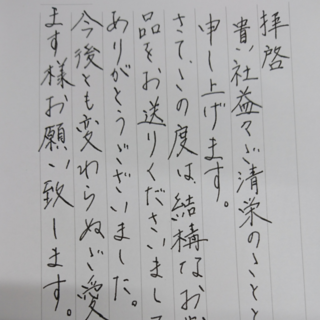 拝啓
貴社益々ご清栄のことと
申し上げます。
さて、この度は、結構なお
品をお送りくださいまして
ありがとうございました。
今後とも変わらぬご愛
ます様お願い致します。